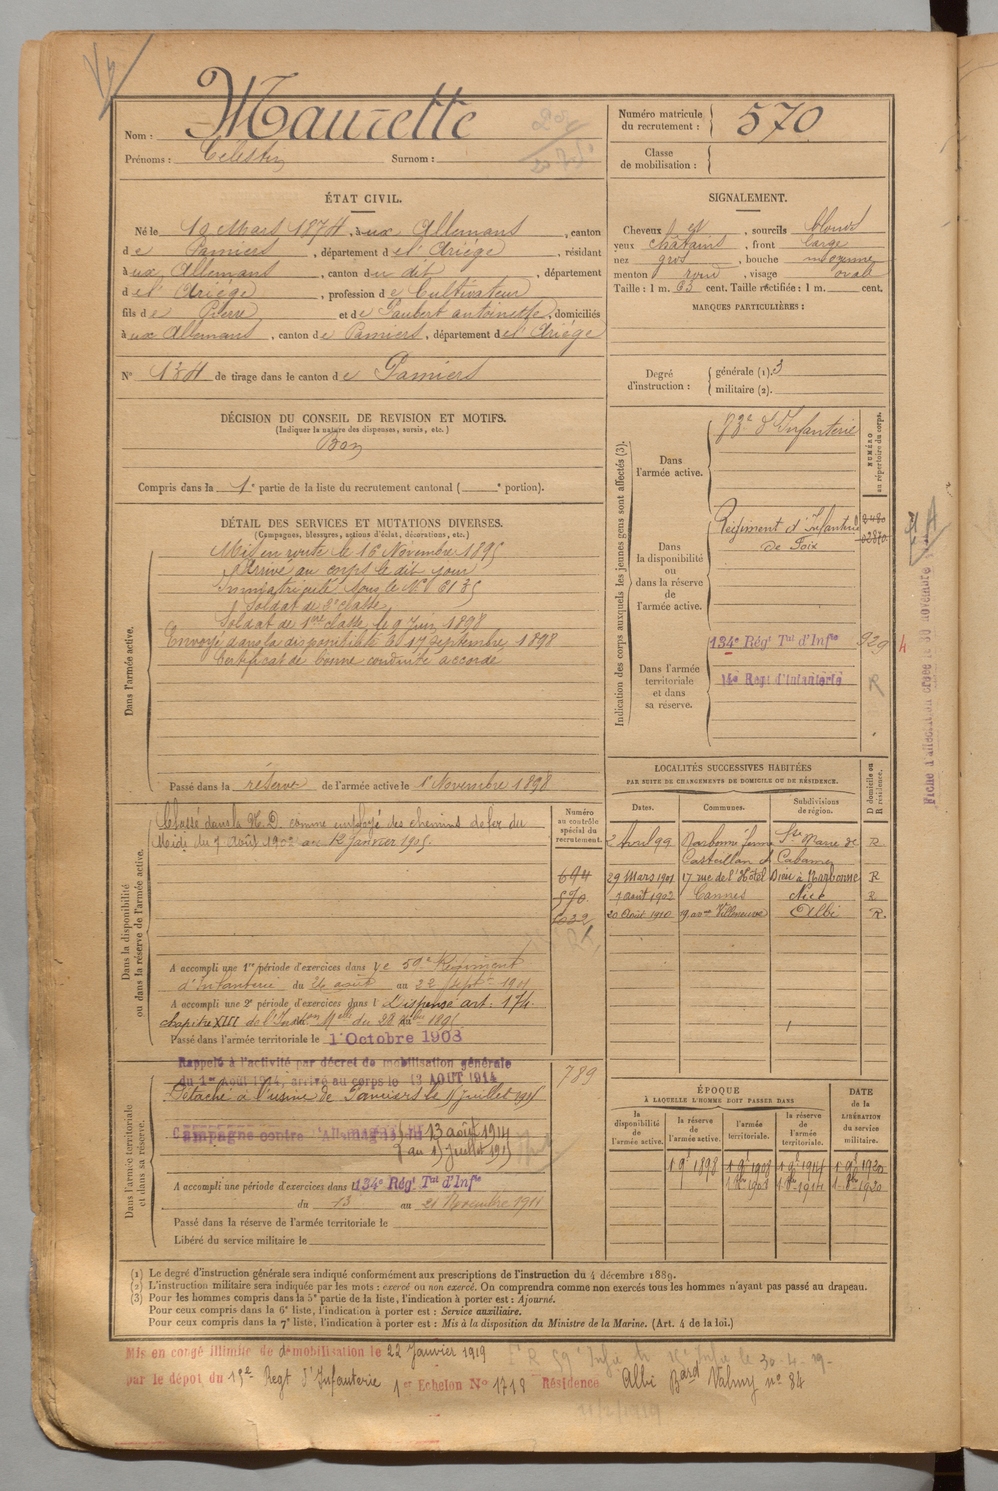 Nom : Maurette
Prénoms : Celestin Surnom :
Numéro matricule du recrutement : 570
Classe de mobilisation :
ÉTAT CIVIL.
Né le 19 Mars 1874, à ux Allemans, canton
de Pamiers, département de l'Ariège, résidant
à ux Allemans, canton du dit, département
de l'Ariège, profession de Cultivateur
fils de Pierre et de Gaubert antoinette, domiciliés
à ux Allemans, canton de Pamiers, département de l'Ariège
N° 134 de tirage dans le canton de Pamiers
DÉCISION DU CONSEIL DE REVISION ET MOTIFS.
(Indiquer la nature des dispenses, sursis, etc.)
Bon
Compris dans la 1e partie de la liste du recrutement cantonal ( e portion).
DÉTAIL DES SERVICES ET MUTATIONS DIVERSES.
(Campagnes, blessures, actions d'éclat, décorations, etc.)
Dans l'armée active.
Mis en route le 16 Novembre 1895
Arrivé au corps le dit jour
Immatriculé sous le N° 6135
Soldat de 2e classe
Soldat de 1ère classe le 9 Juin 1898
Envoyé dans la disponibilité le 17 Septembre 1898
Certificat de bonne conduite accordé
Passé dans la réserve de l'armée active le 1er Novembre 1898
Dans la disponibilité ou dans la réserve de l'armée active.
Classé dans la N.D. comme employé des chemins de fer du
Midi du 7 août 1902 au 12 Janvier 1905.
Numéro au contrôle spécial du recrutement.
694
570
1022
A accompli une 1re période d'exercices dans le 59e Régiment
d'Infanterie du 26 août au 22 septre 1901
A accompli une 2e période d'exercices dans l Dispensé art. 174.
chapitre XIII de l'Instron Mlle du 28 Xbre 1895
Passé dans l'armée territoriale le 1 Octobre 1908
Dans l'armée territoriale et dans sa réserve.
Rappelé à l'activité par décret de mobilisation générale
du 1er Août 1914, arrivé au corps le 13 AOUT 1914
Détaché à l'usine de Pamiers le 15 juillet 1915
789
Campagne contre l'Allemagne du 13 août 1914
au 15 Juillet 1915
A accompli une période d'exercices dans le 134e Régt Tal d'Infie
du 13 au 21 Novembre 1911
Passé dans la réserve de l'armée territoriale le
Libéré du service militaire le
SIGNALEMENT.
Cheveux et, sourcils blonds
yeux châtains, front large
nez gros, bouche moyenne
menton rond, visage ovale
Taille : 1 m. 65 cent. Taille rectifiée : 1 m. cent.
MARQUES PARTICULIÈRES :
Degré d'instruction : générale (1). 3
militaire (2).
Indication des corps auxquels les jeunes gens sont affectés (3).
NUMÉRO au répertoire du corps.
Dans l'armée active.
Dans la disponibilité ou dans la réserve de l'armée active.
Régiment d'Infanterie
de Foix
Dans l'armée territoriale et dans sa réserve.
134e Régt Tal d'Infie 929
Regt d'Infanterie R
Fiche d'affectation 30 novembre
LOCALITÉS SUCCESSIVES HABITÉES
PAR SUITE DE CHANGEMENTS DE DOMICILE OU DE RÉSIDENCE.
Dates. Communes. Subdivisions de région. D domicile ou R résidence.
2 Avril 99 Narbonne ferme Ste Marie de R
Casteillan et Cabames
29 Mars 1901 17 rue de l'Hôtel Dieu à Narbonne R
7 août 1902 Cannes Nice R
20 Août 1910 19 ave Villeneuve Albi R.
ÉPOQUE
À LAQUELLE L'HOMME DOIT PASSER DANS
DATE de la LIBÉRATION du service militaire.
la disponibilité de l'armée active. la réserve de l'armée active. l'armée territoriale. la réserve de l'armée territoriale.
1 9e 1898 1 9e 1908 1 9e 1914 1 9e 1920
1 8bre 1908 1 8bre 1914 1 8bre 1920
(1) Le degré d'instruction générale sera indiqué conformément aux prescriptions de l'instruction du 4 décembre 1889.
(2) L'instruction militaire sera indiquée par les mots : exercé ou non exercé. On comprendra comme non exercés tous les hommes n'ayant pas passé au drapeau.
(3) Pour les hommes compris dans la 5e partie de la liste, l'indication à porter est : Ajourné.
Pour ceux compris dans la 6e liste, l'indication à porter est : Service auxiliaire.
Pour ceux compris dans la 7e liste, l'indication à porter est : Mis à la disposition du Ministre de la Marine. (Art. 4 de la loi.)
Mis en congé illimité de démobilisation le 22 Janvier 1919
par le dépot du 15e Regt d'Infanterie 1er Echelon N° 1718 Résidence Albi Bard Valmy n° 84
11/2/1919